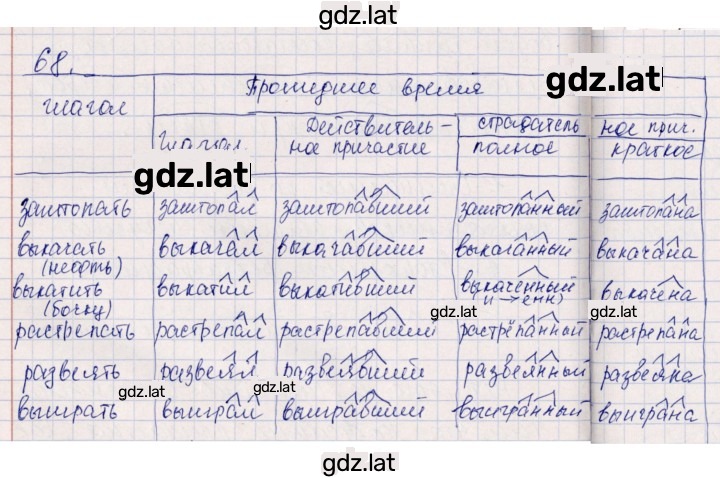 gdz.lat
68.
глагол Прошедшее время gdz.lat
глагол. Действитель- страдатель ное прич.
ное причастие полное краткое
gdz.lat
заштопать заштопал заштопавший заштопанный заштопана
выкачать выкачал выкачавший выкачанный выкачана
(нефть)
выкатить выкатил выкативший выкаченный выкачена
(бочку) (и → енн)
gdz.lat gdz.lat
растрепать растрепал растрепавший растрёпанный растрепана
развеять развеял развеявший развеянный развеяна
gdz.lat gdz.lat
выиграть выиграл выигравший выигранный выиграна
gdz.lat